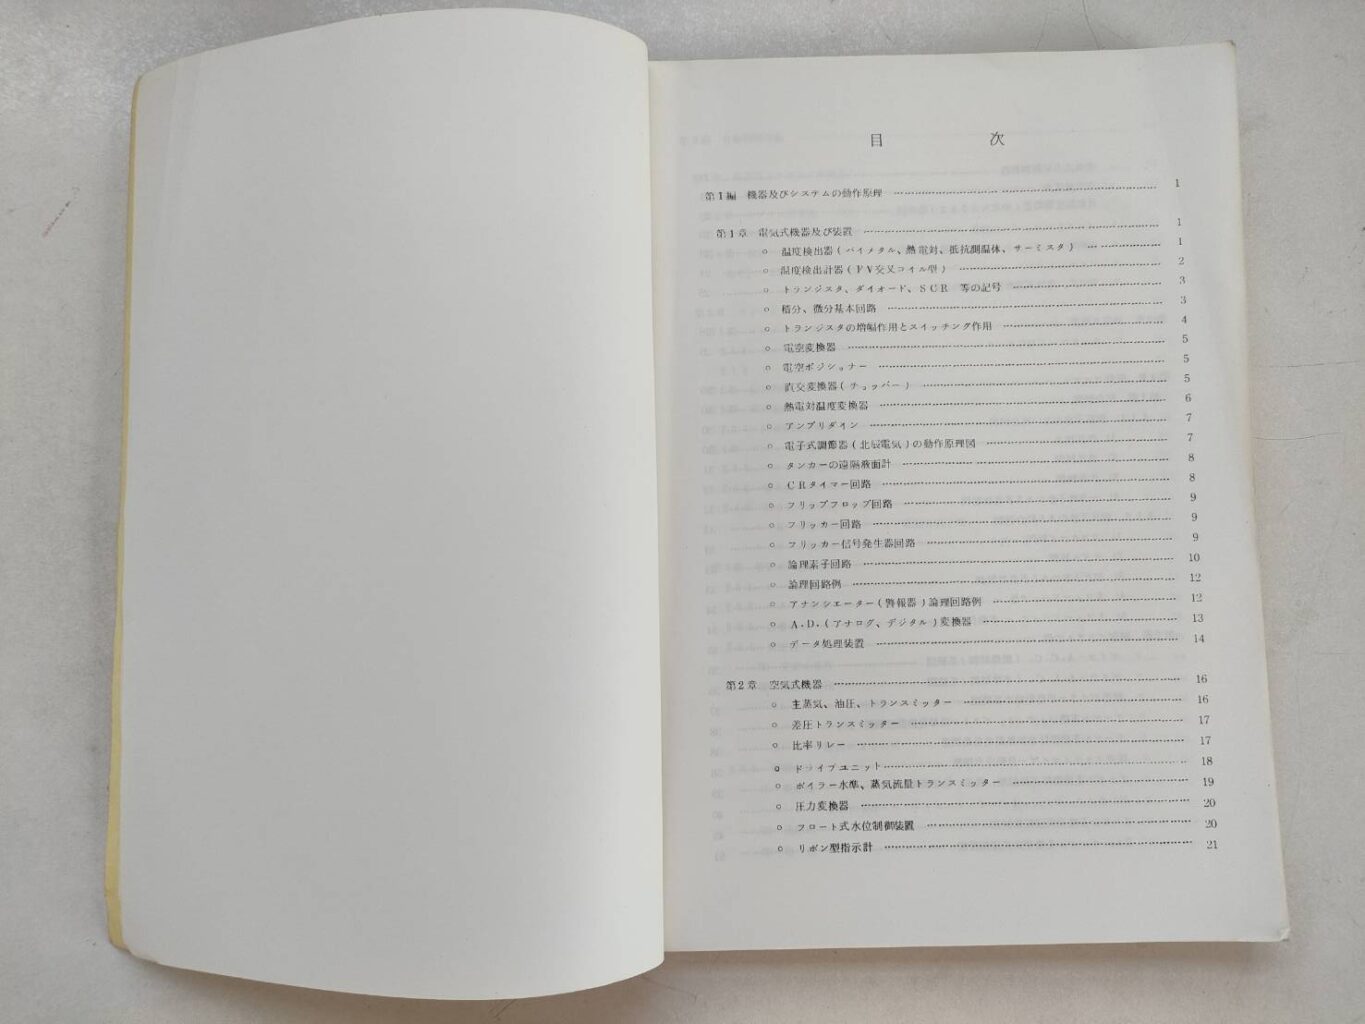 目 次
第1編 機器及びシステムの動作原理 1
第1章 電気式機器及び装置 1
○ 温度検出器(バイメタル、熱電対、抵抗測温体、サーミスタ) 1
○ 温度検出計器(FV交叉コイル型) 2
○ トランジスタ、ダイオード、SCR 等の記号 3
○ 積分、微分基本回路 3
○ トランジスタの増幅作用とスイッチング作用 4
○ 電空変換器 5
○ 電空ポジショナー 5
○ 直交変換器(チョッパー) 5
○ 熱電対温度変換器 6
○ アンプリダイン 7
○ 電子式調節器(北辰電気)の動作原理図 7
○ タンカーの遠隔液面計 8
○ CRタイマー回路 8
○ フリップフロップ回路 9
○ フリッカー回路 9
○ フリッカー信号発生器回路 9
○ 論理素子回路 10
○ 論理回路例 12
○ アナンシエーター(警報器)論理回路例 12
○ A.D.(アナログ、デジタル)変換器 13
○ データ処理装置 14
第2章 空気式機器 16
○ 主蒸気、油圧、トランスミッター 16
○ 差圧トランスミッター 17
○ 比率リレー 17
○ ドライブユニット 18
○ ボイラー水準、蒸気流量トランスミッター 19
○ 圧力変換器 20
○ フロート式水位制御装置 20
○ リボン型指示計 21